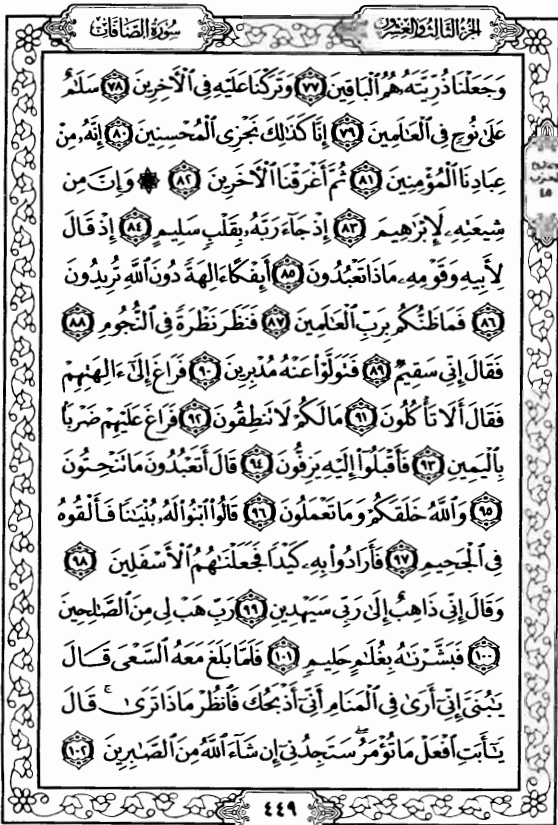 سُورَةُ الصَّافَّاتِ
الجُزْءُ الثَّالِثُ وَالْعِشْرُونَ
وَجَعَلْنَا ذُرِّيَّتَهُۥ هُمُ الْبَاقِينَ ٧٧ وَتَرَكْنَا عَلَيْهِ فِى الْأَخِرِينَ ٧٨ سَلَٰمٌ
عَلَىٰ نُوحٍ فِى الْعَٰلَمِينَ ٧٩ إِنَّا كَذَٰلِكَ نَجْزِى الْمُحْسِنِينَ ٨٠ إِنَّهُۥ مِنْ
عِبَادِنَا الْمُؤْمِنِينَ ٨١ ثُمَّ أَغْرَقْنَا الْأَخَرِينَ ٨٢ ۞ وَإِنَّ مِن
شِيعَتِهِۦ لَإِبْرَٰهِيمَ ٨٣ إِذْ جَآءَ رَبَّهُۥ بِقَلْبٍ سَلِيمٍ ٨٤ إِذْ قَالَ
لِأَبِيهِ وَقَوْمِهِۦ مَاذَا تَعْبُدُونَ ٨٥ أَئِفْكًا ءَالِهَةً دُونَ اللَّهِ تُرِيدُونَ
٨٦ فَمَا ظَنُّكُم بِرَبِّ الْعَٰلَمِينَ ٨٧ فَنَظَرَ نَظْرَةً فِى النُّجُومِ ٨٨
فَقَالَ إِنِّى سَقِيمٌ ٨٩ فَتَوَلَّوْا۟ عَنْهُ مُدْبِرِينَ ٩٠ فَرَاغَ إِلَىٰٓ ءَالِهَتِهِمْ
فَقَالَ أَلَا تَأْكُلُونَ ٩١ مَا لَكُمْ لَا تَنطِقُونَ ٩٢ فَرَاغَ عَلَيْهِمْ ضَرْبًۢا
بِالْيَمِينِ ٩٣ فَأَقْبَلُوٓا۟ إِلَيْهِ يَزِفُّونَ ٩٤ قَالَ أَتَعْبُدُونَ مَا تَنْحِتُونَ
٩٥ وَاللَّهُ خَلَقَكُمْ وَمَا تَعْمَلُونَ ٩٦ قَالُوا۟ ابْنُوا۟ لَهُۥ بُنْيَٰنًا فَأَلْقُوهُ
فِى الْجَحِيمِ ٩٧ فَأَرَادُوا۟ بِهِۦ كَيْدًا فَجَعَلْنَٰهُمُ الْأَسْفَلِينَ ٩٨
وَقَالَ إِنِّى ذَاهِبٌ إِلَىٰ رَبِّى سَيَهْدِينِ ٩٩ رَبِّ هَبْ لِى مِنَ الصَّٰلِحِينَ
١٠٠ فَبَشَّرْنَٰهُ بِغُلَٰمٍ حَلِيمٍ ١٠١ فَلَمَّا بَلَغَ مَعَهُ السَّعْىَ قَالَ
يَٰبُنَىَّ إِنِّىٓ أَرَىٰ فِى الْمَنَامِ أَنِّىٓ أَذْبَحُكَ فَانظُرْ مَاذَا تَرَىٰ ۚ قَالَ
يَٰٓأَبَتِ افْعَلْ مَا تُؤْمَرُ ۖ سَتَجِدُنِىٓ إِن شَآءَ اللَّهُ مِنَ الصَّٰبِرِينَ ١٠٢
٤٤٩